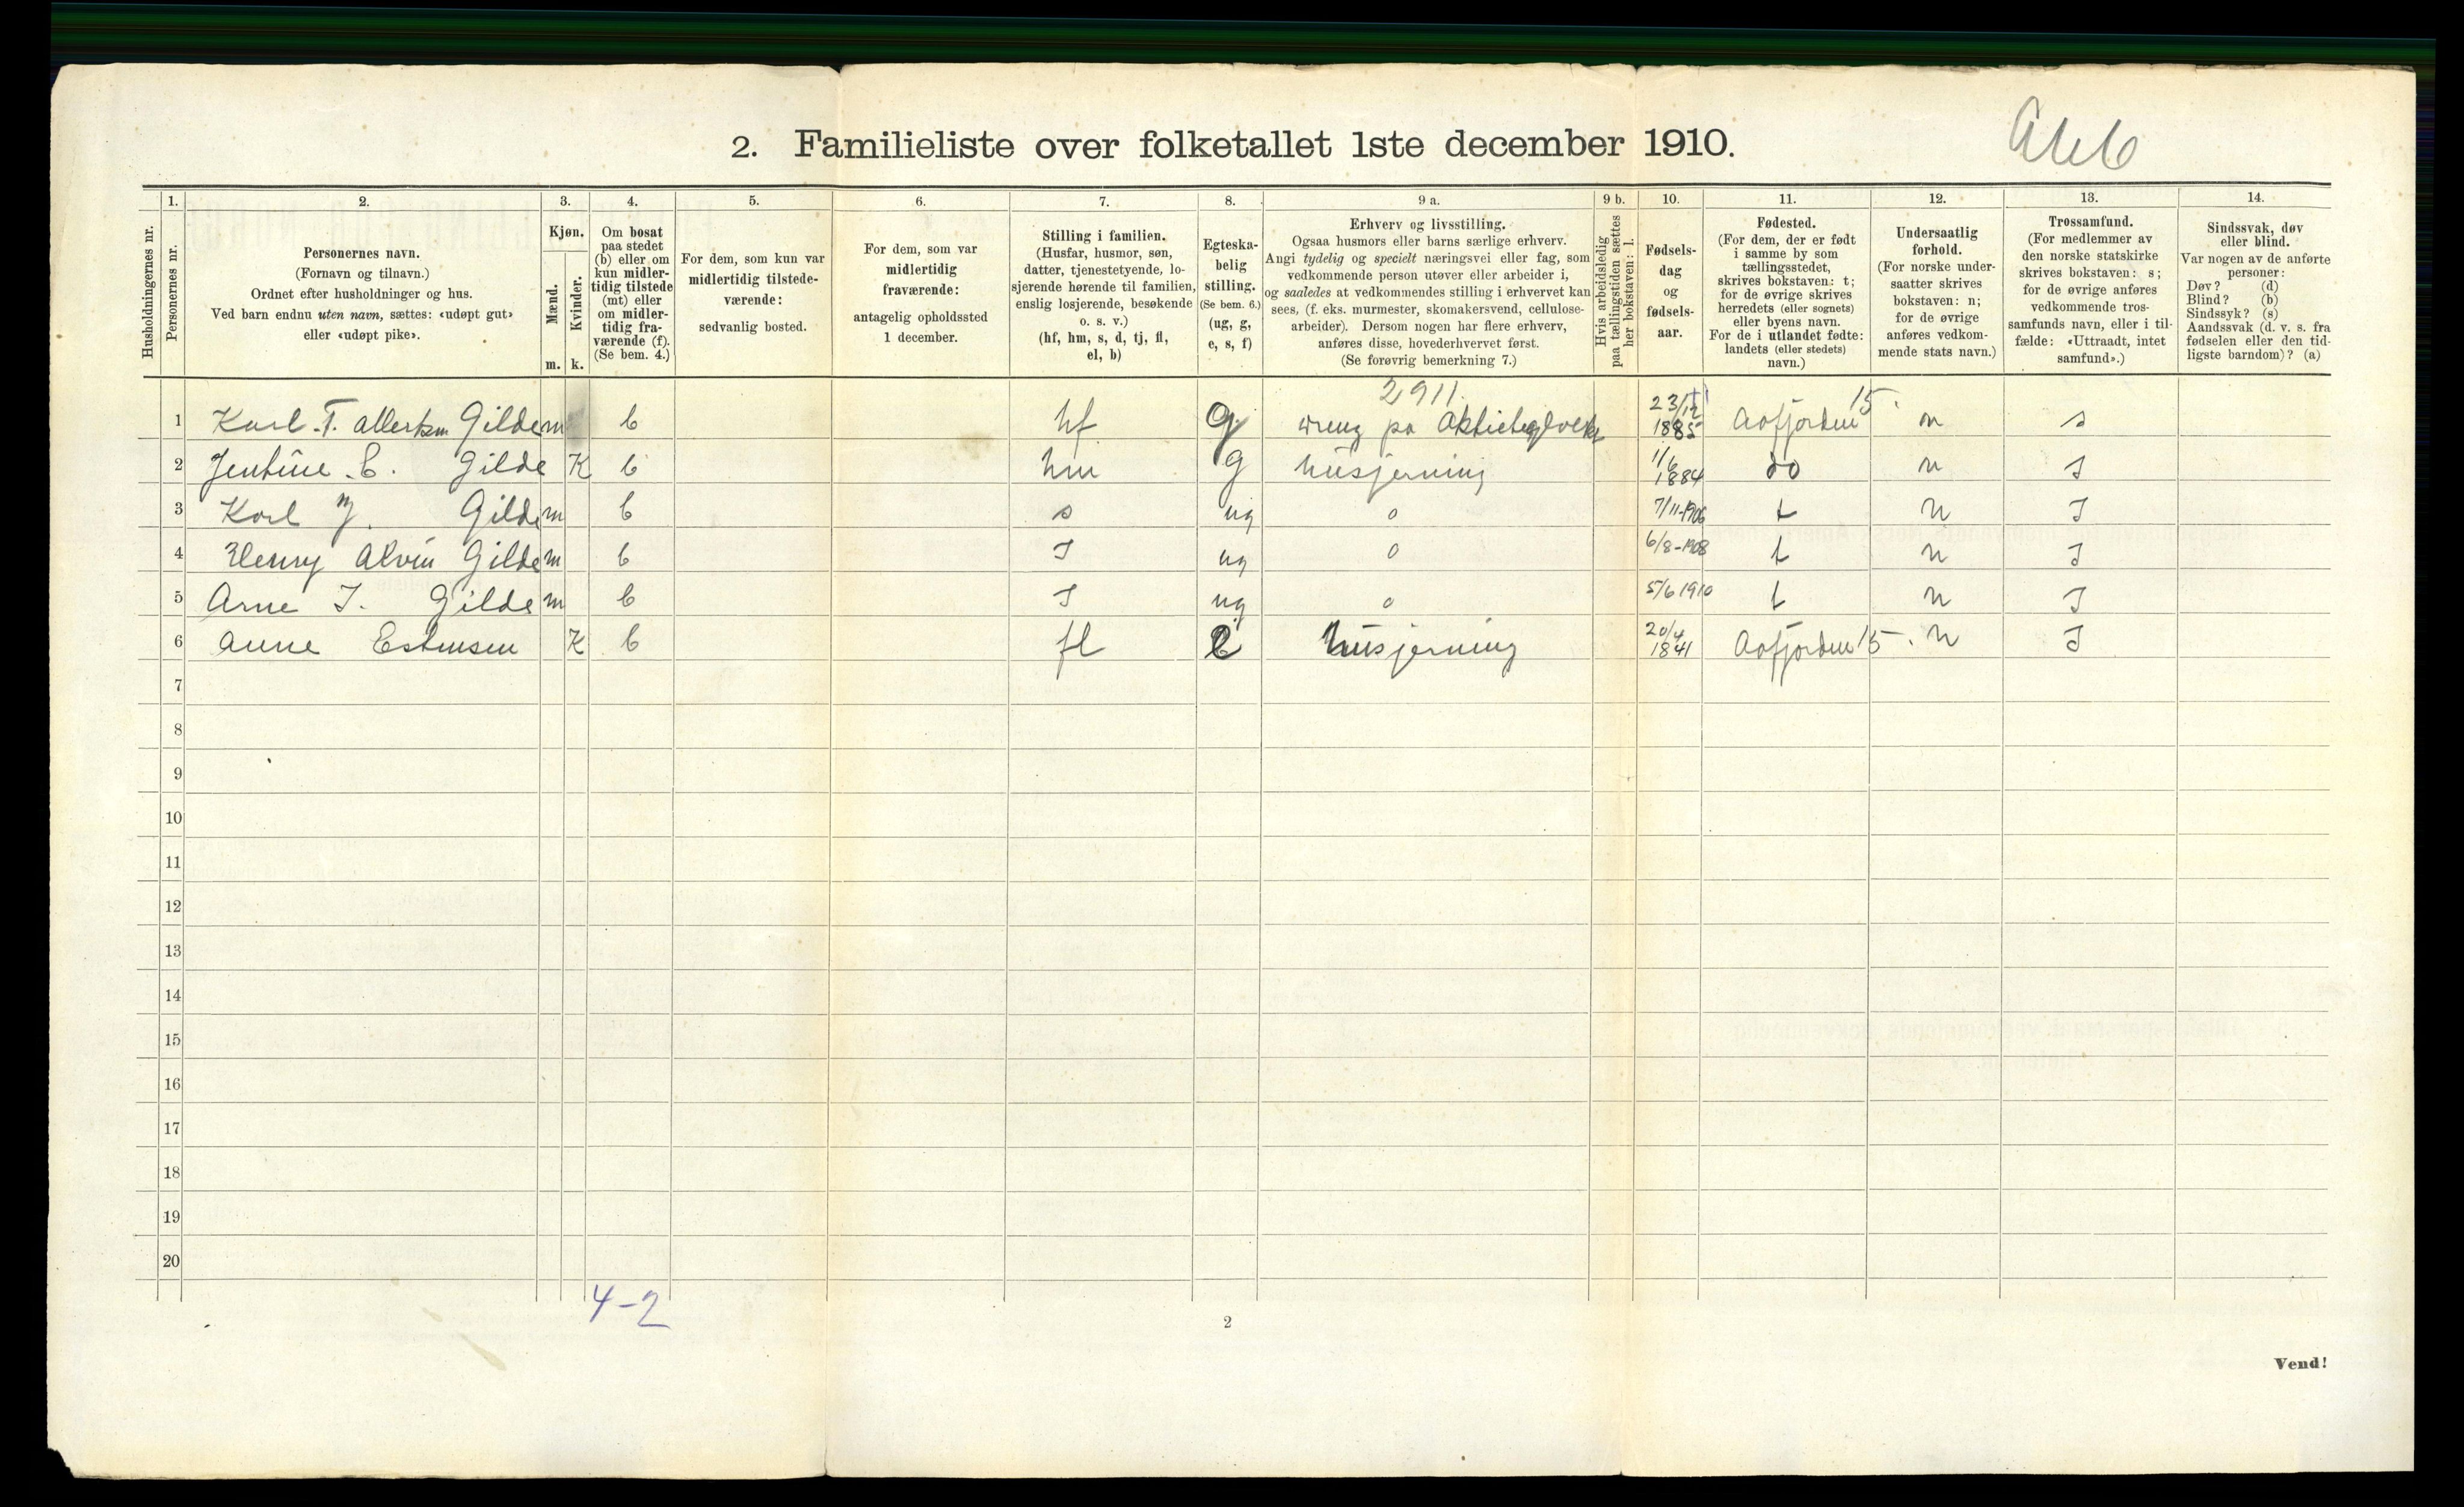 2. Familieliste over folketallet 1ste december 1910.
1. 2. 3. 4. 5. 6. 7. 8. 9 a. 9 b. 10. 11. 12. 13. 14.
Husholdningernes nr.
Personernes nr.
Personernes navn.
(Fornavn og tilnavn.)
Ordnet efter husholdninger og hus.
Ved barn endnu uten navn, sættes: «udøpt gut»
eller «udøpt pike».
Kjøn.
Mænd.
Kvinder.
m. k.
Om bosat
paa stedet
(b) eller om
kun midler-
tidig tilstede
(mt) eller
om midler-
tidig fra-
værende (f).
(Se bem. 4.)
For dem, som kun var
midlertidig tilstede-
værende:
sedvanlig bosted.
For dem, som var
midlertidig
fraværende:
antagelig opholdssted
1 december.
Stilling i familien.
(Husfar, husmor, søn,
datter, tjenestetyende, lo-
sjerende hørende til familien,
enslig losjerende, besøkende
o. s. v.)
(hf, hm, s, d, tj, fl,
el, b)
Egteska-
belig
stilling.
(Se bem. 6.)
(ug, g,
e, s, f)
Erhverv og livsstilling.
Ogsaa husmors eller barns særlige erhverv.
Angi tydelig og specielt næringsvei eller fag, som
vedkommende person utøver eller arbeider i,
og saaledes at vedkommendes stilling i erhvervet kan
sees, (f. eks. murmester, skomakersvend, cellulose-
arbeider). Dersom nogen har flere erhverv,
anføres disse, hovederhvervet først.
(Se forøvrig bemerkning 7.)
Hvis arbeidsledig
paa tællingstiden sættes
her bokstaven: l.
Fødsels-
dag
og
fødsels-
aar.
Fødested.
(For dem, der er født
i samme by som
tællingsstedet,
skrives bokstaven: t;
for de øvrige skrives
herredets (eller sognets)
eller byens navn.
For de i utlandet fødte:
landets (eller stedets)
navn.)
Undersaatlig
forhold.
(For norske under-
saatter skrives
bokstaven: n;
for de øvrige
anføres vedkom-
mende stats navn.)
Trossamfund.
(For medlemmer av
den norske statskirke
skrives bokstaven: s;
for de øvrige anføres
vedkommende tros-
samfunds navn, eller i til-
fælde: «Uttraadt, intet
samfund».)
Sindssvak, døv
eller blind.
Var nogen av de anførte
personer:
Døv? (d)
Blind? (b)
Sindssyk? (s)
Aandssvak (d. v. s. fra
fødselen eller den tid-
ligste barndom)? (a)
2911. 15.
1 Karl T. Gilde m b hf g 23/12 1885 Aafjorden n s
2 Jentine Gilde K b hm g husjerning 1/6 1884 do n S
3 Karl Gilde m b s ug o 7/11-1906 t n S
4 Henry Alvin Gilde m b S ug o 6/8-1908 t n S
5 Arne J. Gilde m b S ug o 5/6 1910 t n S
6 Anne K b fl e husjerning 20/4 1841 Aafjorden 15. n S
7
8
9
10
11
12
13
14
15
16
17
18
19
20
4-2
2
Vend!